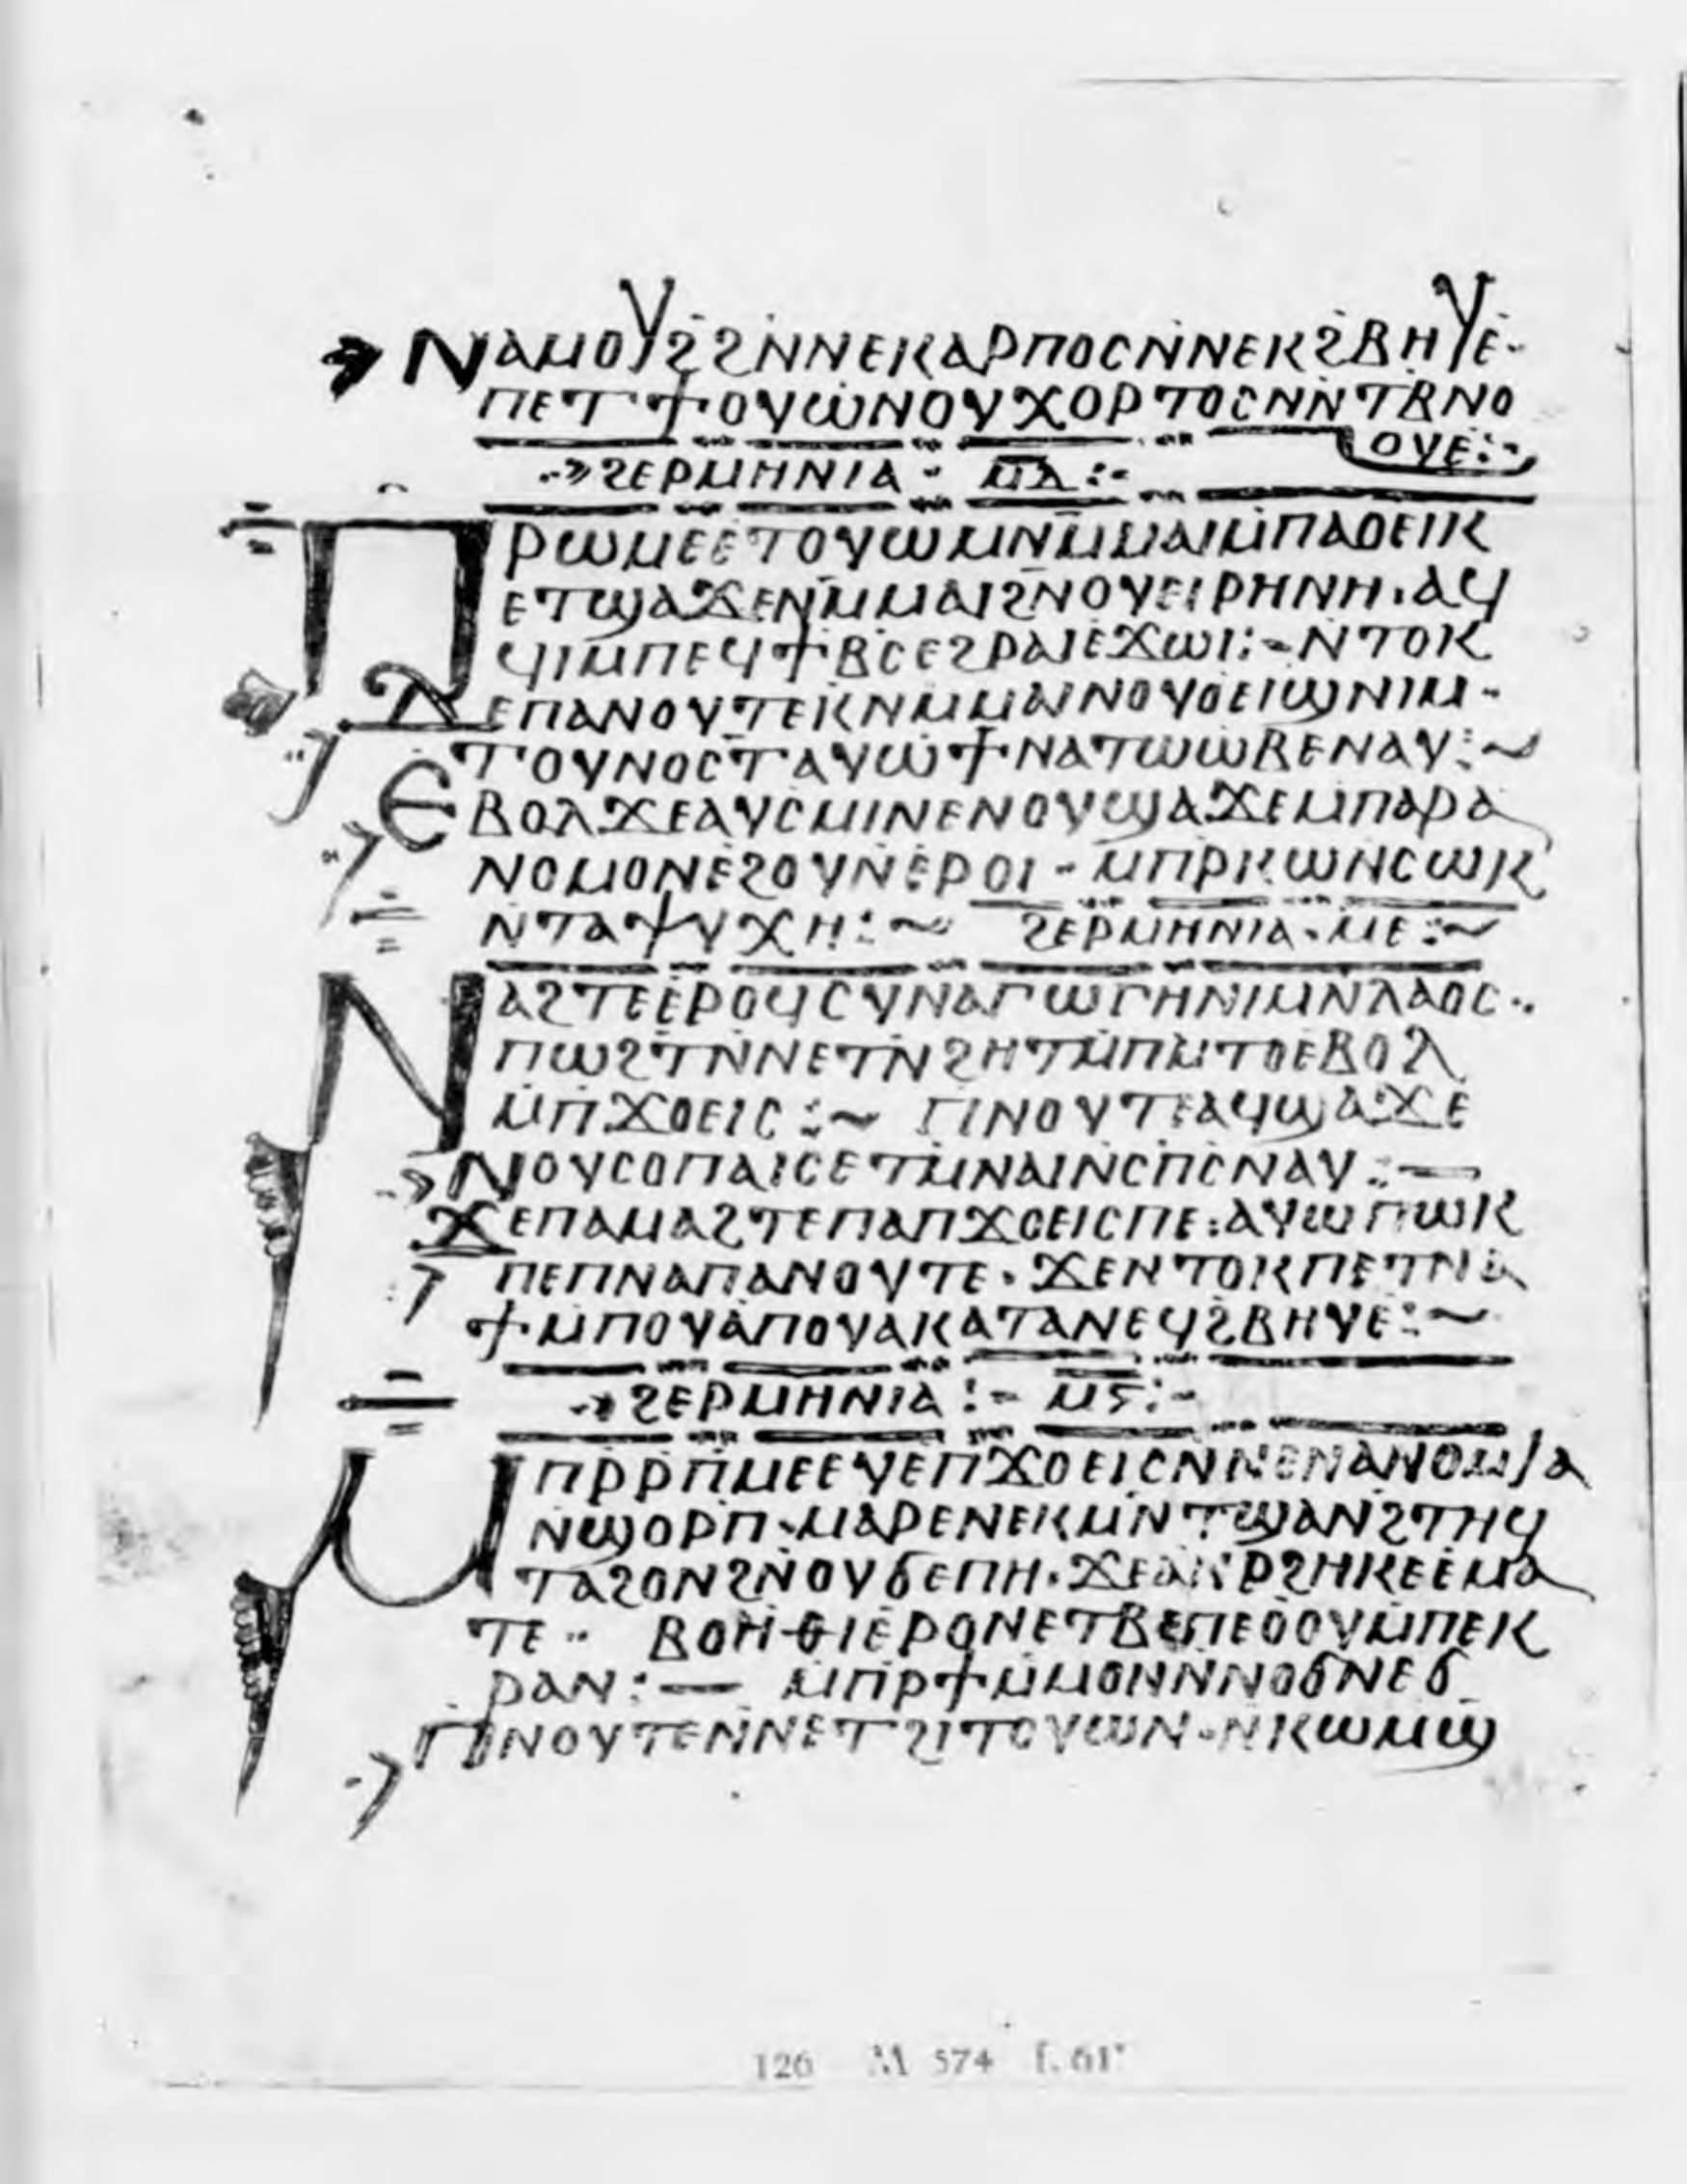 ⲚⲀⲘⲟⲨϨϨⲚⲚⲈⲔⲀⲢⲠⲞⲤⲚⲚⲈⲔϨⲂⲎⲨⲈ·
ⲠⲈⲦϮⲞⲨⲰⲚⲞⲨⲬⲞⲢⲦⲞⲤⲚⲚⲦⲂⲚⲞ
ⲞⲨⲈ:-
ϨⲈⲢⲘⲎⲚⲒⲀ · ⲘⲆ̅ :-
ⲠⲢⲰⲘⲈⲈⲦⲞⲨⲰⲘⲚⲘⲘⲀⲒⲘⲠⲀⲞⲈⲒⲔ
ⲈⲦϢⲀϪⲈⲚⲘⲘⲀⲒϨⲚⲞⲨⲈⲒⲢⲎⲚⲎ·ⲀϤ
ϤⲒⲘⲠⲈϤϮⲂⲤⲈϨⲢⲀⲒⲈϪⲰⲒ:-ⲚⲦⲞⲔ
ⲆⲈⲠⲀⲚⲞⲨⲦⲈⲔⲚⲘⲘⲀⲒⲚⲞⲨⲞⲈⲒϢⲚⲒⲘ·
ⲦⲞⲨⲚⲞⲤⲦⲀⲨⲰϮⲚⲀⲦⲰⲰⲂⲈⲚⲀⲨ:~
ⲈⲂⲞⲖϪⲈⲀⲨⲤⲘⲒⲚⲈⲚⲞⲨϢⲀϪⲈⲘⲠⲀⲢⲀ
ⲚⲞⲘⲞⲚⲈϨⲞⲨⲚⲈⲢⲞⲒ-ⲘⲠⲢⲔⲰⲚⲤⲰⲔ
ⲚⲦⲀⲮⲨⲬⲎ:~ ϨⲈⲢⲘⲎⲚⲒⲀ·ⲘⲈ:~
ⲚⲀϨⲦⲈⲈⲢⲞϤⲤⲨⲚⲀⲄⲰⲄⲎⲚⲒⲘⲚⲖⲀⲞⲤ··
ⲠⲰϨⲦⲚⲚⲈⲦⲚϨⲎⲦⲘⲠⲘⲦⲞⲈⲂⲞⲖ
ⲘⲠϪⲞⲈⲒⲤ:~ ⲠⲚⲞⲨⲦⲈⲀϤϢⲀϪⲈ
ⲚⲞⲨⲤⲞⲠⲀⲒⲤⲈⲦⲘⲚⲀⲒⲚⲤⲠⲤⲚⲀⲨ:—
ϪⲈⲠⲀⲘⲀϨⲦⲈⲠⲀⲠϪⲞⲈⲒⲤⲠⲈ:ⲀⲨⲰⲠⲰⲔ
ⲠⲈⲠⲚⲀⲠⲀⲚⲞⲨⲦⲈ·ϪⲈⲚⲦⲞⲔⲠⲈⲦⲚⲀ
ϮⲘⲠⲞⲨⲀⲠⲞⲨⲀⲔⲀⲦⲀⲚⲈϤϨⲂⲎⲨⲈ:~
ϨⲈⲢⲘⲎⲚⲒⲀ:- ⲘⲊ̅:-
ⲘⲠⲢⲢⲠⲘⲈⲈⲨⲈⲠϪⲞⲈⲒⲤⲚⲚⲈⲚⲀⲚⲞⲘⲒⲀ
ⲚϢⲞⲢⲠ·ⲘⲀⲢⲈⲚⲈⲔⲘⲚⲦϢⲀⲚϨⲦⲎϤ
ⲦⲀϨⲞⲚϨⲚⲞⲨϬⲈⲠⲎ·ϪⲈⲀⲚⲢϨⲎⲔⲈⲈⲘⲀ
ⲦⲈ·· ⲂⲞⲎⲐⲒⲈⲢⲞⲚⲈⲦⲂⲈⲠⲈⲞⲞⲨⲘⲠⲈⲔ
ⲢⲀⲚ:— ⲘⲠⲢϮⲘⲘⲞⲚⲚⲚⲞϬⲚⲈϬ
ⲠⲚⲞⲨⲦⲈⲚⲚⲈⲦϨⲒⲦⲞⲨⲰⲚ·ⲚⲔⲰⲘϢ
126 M 574 f. 61ʳ